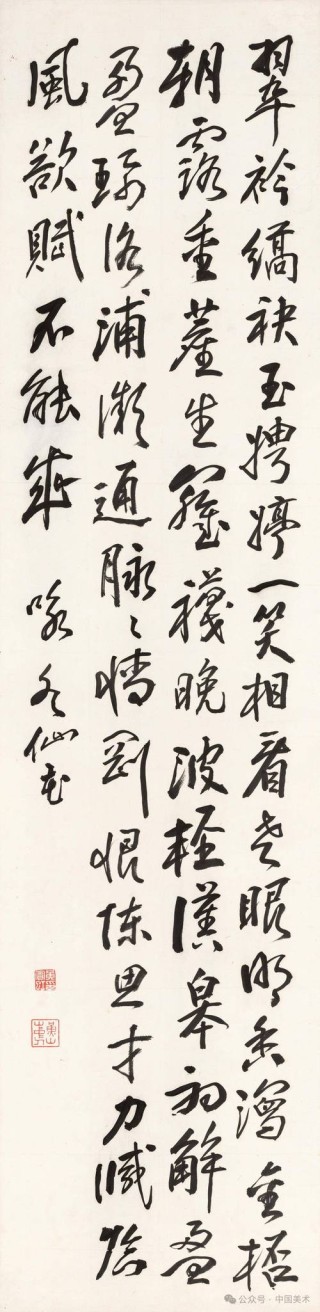 翠衿縞袂玉娉婷一笑相看老眼明香瀉金桮
朝露重塵生羅襪晚波輕漢皋初解盈
盈珮洛浦微通脉〻情剛恨陳思才力減臨
風欲賦不能成 詠水仙花
公众号·中国美术